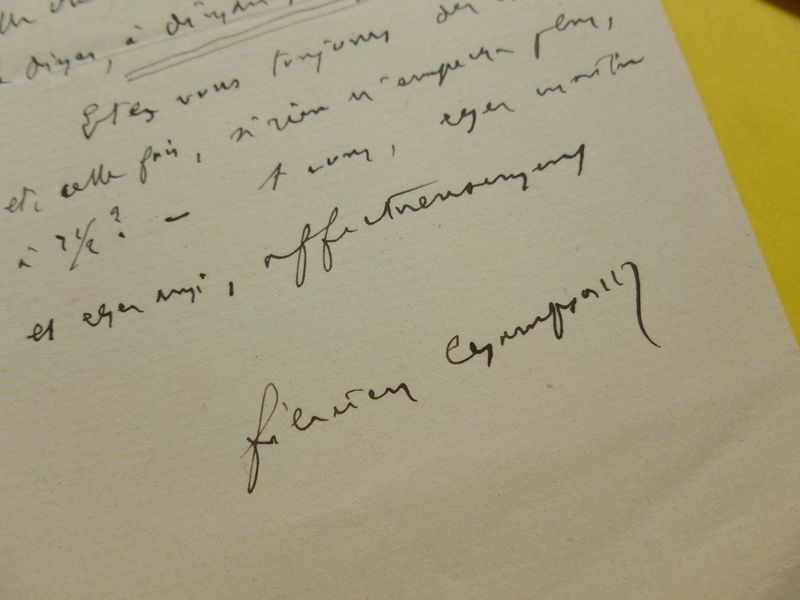 dîner, à dîner,
Êtes vous toujours des
et, cette fois, si rien n'empêche plus,
à 7½? — A vous, cher maître
et cher ami, affectueusement
Lucien